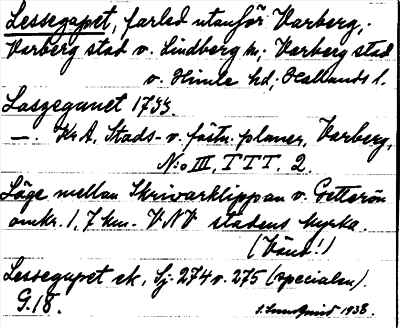 Lessegapet, farled utanför Varberg,
Varberg stad o. Lindberg sn; Varberg stad
o. Himle hd; Hallands l.
Laszegamet 1733
—. KrA, Stads- o. fästn. planer, Varberg,
N:o III, TTT. 2.
Läge mellan Skrivarklippan o. Getterön
omkr. 1,7 km. VNV stadens kyrka.
(Vänd!)
Lessegapet ek, Sj. 274 o. 275 (specialen).
G.18.
1938